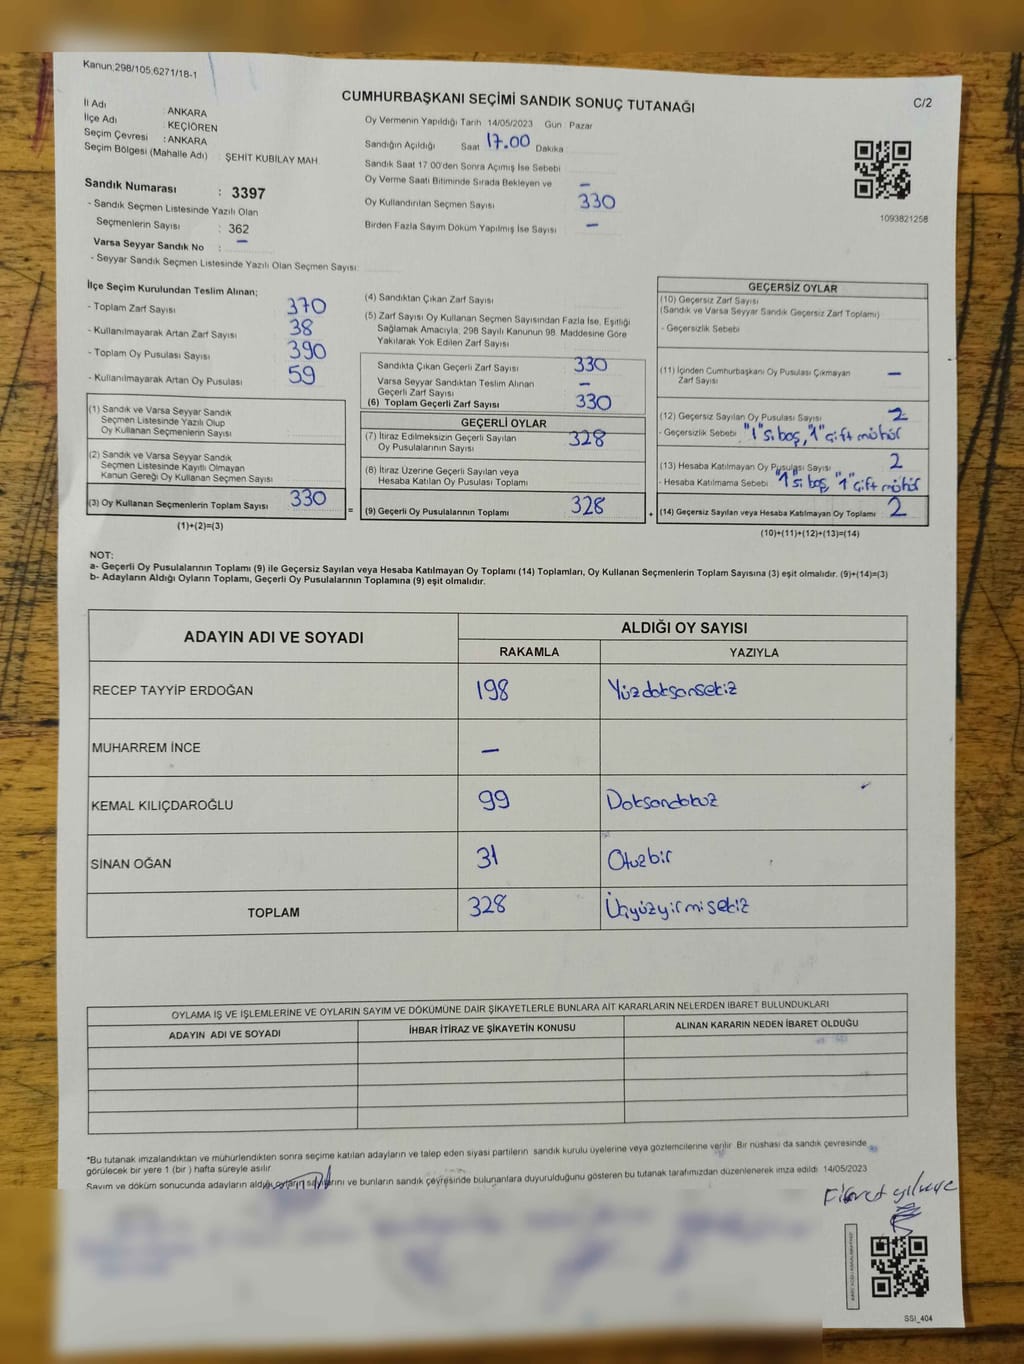 Kanun;298/105;6271/18-1
C/2
CUMHURBAŞKANI SEÇİMİ SANDIK SONUÇ TUTANAĞI
İl Adı : ANKARA
İlçe Adı : KEÇİÖREN
Seçim Çevresi : ANKARA
Seçim Bölgesi (Mahalle Adı) : ŞEHİT KUBİLAY MAH.
Sandık Numarası : 3397
- Sandık Seçmen Listesinde Yazılı Olan
Seçmenlerin Sayısı : 362
Varsa Seyyar Sandık No : –
- Seyyar Sandık Seçmen Listesinde Yazılı Olan Seçmen Sayısı:
Oy Vermenin Yapıldığı Tarih 14/05/2023 Gün : Pazar
Sandığın Açıldığı Saat 17.00 Dakika
Sandık Saat 17.00'den Sonra Açımış İse Sebebi
Oy Verme Saati Bitiminde Sırada Bekleyen ve –
Oy Kullandırılan Seçmen Sayısı 330
Birden Fazla Sayım Döküm Yapılmış İse Sayısı –
1093821258
İlçe Seçim Kurulundan Teslim Alınan;
- Toplam Zarf Sayısı 370
- Kullanılmayarak Artan Zarf Sayısı 38
- Toplam Oy Pusulası Sayısı 390
- Kullanılmayarak Artan Oy Pusulası 59
(1) Sandık ve Varsa Seyyar Sandık
Seçmen Listesinde Yazılı Olup
Oy Kullanan Seçmenlerin Sayısı
(2) Sandık ve Varsa Seyyar Sandık
Seçmen Listesinde Kayıtlı Olmayan
Kanun Gereği Oy Kullanan Seçmen Sayısı
(3) Oy Kullanan Seçmenlerin Toplam Sayısı 330
(1)+(2)=(3)
=
(4) Sandıktan Çıkan Zarf Sayısı
(5) Zarf Sayısı Oy Kullanan Seçmen Sayısından Fazla İse, Eşitliği
Sağlamak Amacıyla, 298 Sayılı Kanunun 98. Maddesine Göre
Yakılarak Yok Edilen Zarf Sayısı
Sandıkta Çıkan Geçerli Zarf Sayısı 330
Varsa Seyyar Sandıktan Teslim Alınan –
Geçerli Zarf Sayısı
(6) Toplam Geçerli Zarf Sayısı 330
GEÇERLİ OYLAR
(7) İtiraz Edilmeksizin Geçerli Sayılan 328
Oy Pusulasının Sayısı
(8) İtiraz Üzerine Geçerli Sayılan veya
Hesaba Katılan Oy Pusulası Toplamı
(9) Geçerli Oy Pusulalarının Toplamı 328
+
GEÇERSİZ OYLAR
(10) Geçersiz Zarf Sayısı
(Sandık ve Varsa Seyyar Sandık Geçersiz Zarf Toplamı)
- Geçersizlik Sebebi
(11) İçinden Cumhurbaşkanı Oy Pusulası Çıkmayan –
Zarf Sayısı
(12) Geçersiz Sayılan Oy Pusulası Sayısı 2
- Geçersizlik Sebebi "1"si boş, "1" çift mühür
(13) Hesaba Katılmayan Oy Pusulası Sayısı 2
- Hesaba Katılmama Sebebi "1"si boş, "1" çift mühür
(14) Geçersiz Sayılan veya Hesaba Katılmayan Oy Toplamı 2
(10)+(11)+(12)+(13)=(14)
NOT:
a- Geçerli Oy Pusulalarının Toplamı (9) ile Geçersiz Sayılan veya Hesaba Katılmayan Oy Toplamı (14) Toplamları, Oy Kullanan Seçmenlerin Toplam Sayısına (3) eşit olmalıdır. (9)+(14)=(3)
b- Adayların Aldığı Oyların Toplamı, Geçerli Oy Pusulalarının Toplamına (9) eşit olmalıdır.
ADAYIN ADI VE SOYADI
ALDIĞI OY SAYISI
RAKAMLA YAZIYLA
RECEP TAYYİP ERDOĞAN 198 Yüzdoksansekiz
MUHARREM İNCE –
KEMAL KILIÇDAROĞLU 99 Doksandokuz
SİNAN OĞAN 31 Otuzbir
TOPLAM 328 Üçyüzyirmisekiz
OYLAMA İŞ VE İŞLEMLERİNE VE OYLARIN SAYIM VE DÖKÜMÜNE DAİR ŞİKAYETLERLE BUNLARA AİT KARARLARIN NELERDEN İBARET BULUNDUKLARI
ADAYIN ADI VE SOYADI İHBAR İTİRAZ VE ŞİKAYETİN KONUSU ALINAN KARARIN NEDEN İBARET OLDUĞU
*Bu tutanak imzalandıktan ve mühürlendikten sonra seçime katılan adayların ve talep eden siyasi partilerin sandık kurulu üyelerine veya gözlemcilerine verilir. Bir nüshası da sandık çevresinde
görülecek bir yere 1 (bir ) hafta süreyle asılır.
Sayım ve döküm sonucunda adayların aldığı oyların sayılarını ve bunların sandık çevresinde bulunanlara duyurulduğunu gösteren bu tutanak tarafımızdan düzenlenerek imza edildi. 14/05/2023
SSI_404